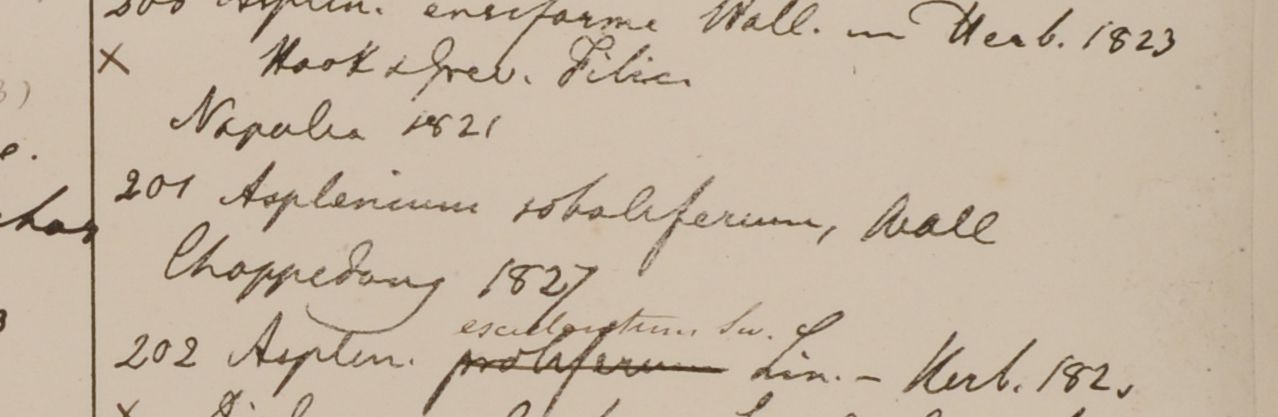 200 Asplen. ensiforme Wall. in Herb. 1823
× Hook & Grev. Filic.
Napalia 1821
201 Asplenium soboliferum, Wall
Choppedong 1827
Sw.
202 Asplen. proliferum Lin. – Herb. 182
×